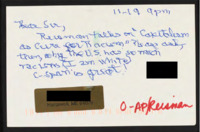 11-19 9pm
Dear Sir,
Reisman talks on "Capitalism
as Cure for Racism" Is my ask,
then, why the U.S. has so much
racism. I am white.
C-Span is great!
O-APReisman